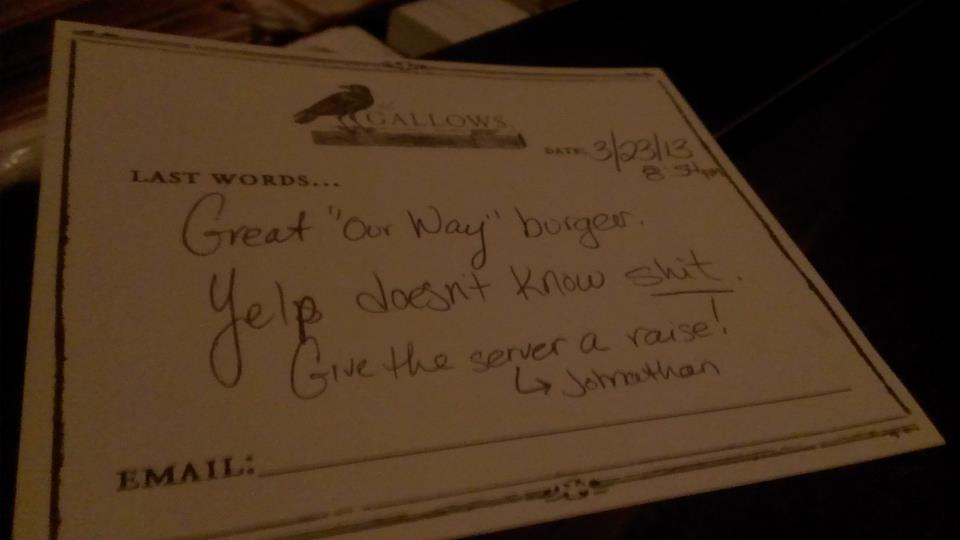 the GALLOWS
DATE: 3/23/13
8:54pm
LAST WORDS...
Great "Our Way" burger.
Yelp doesn't know shit.
Give the server a raise!
↳ Johnathan
EMAIL: